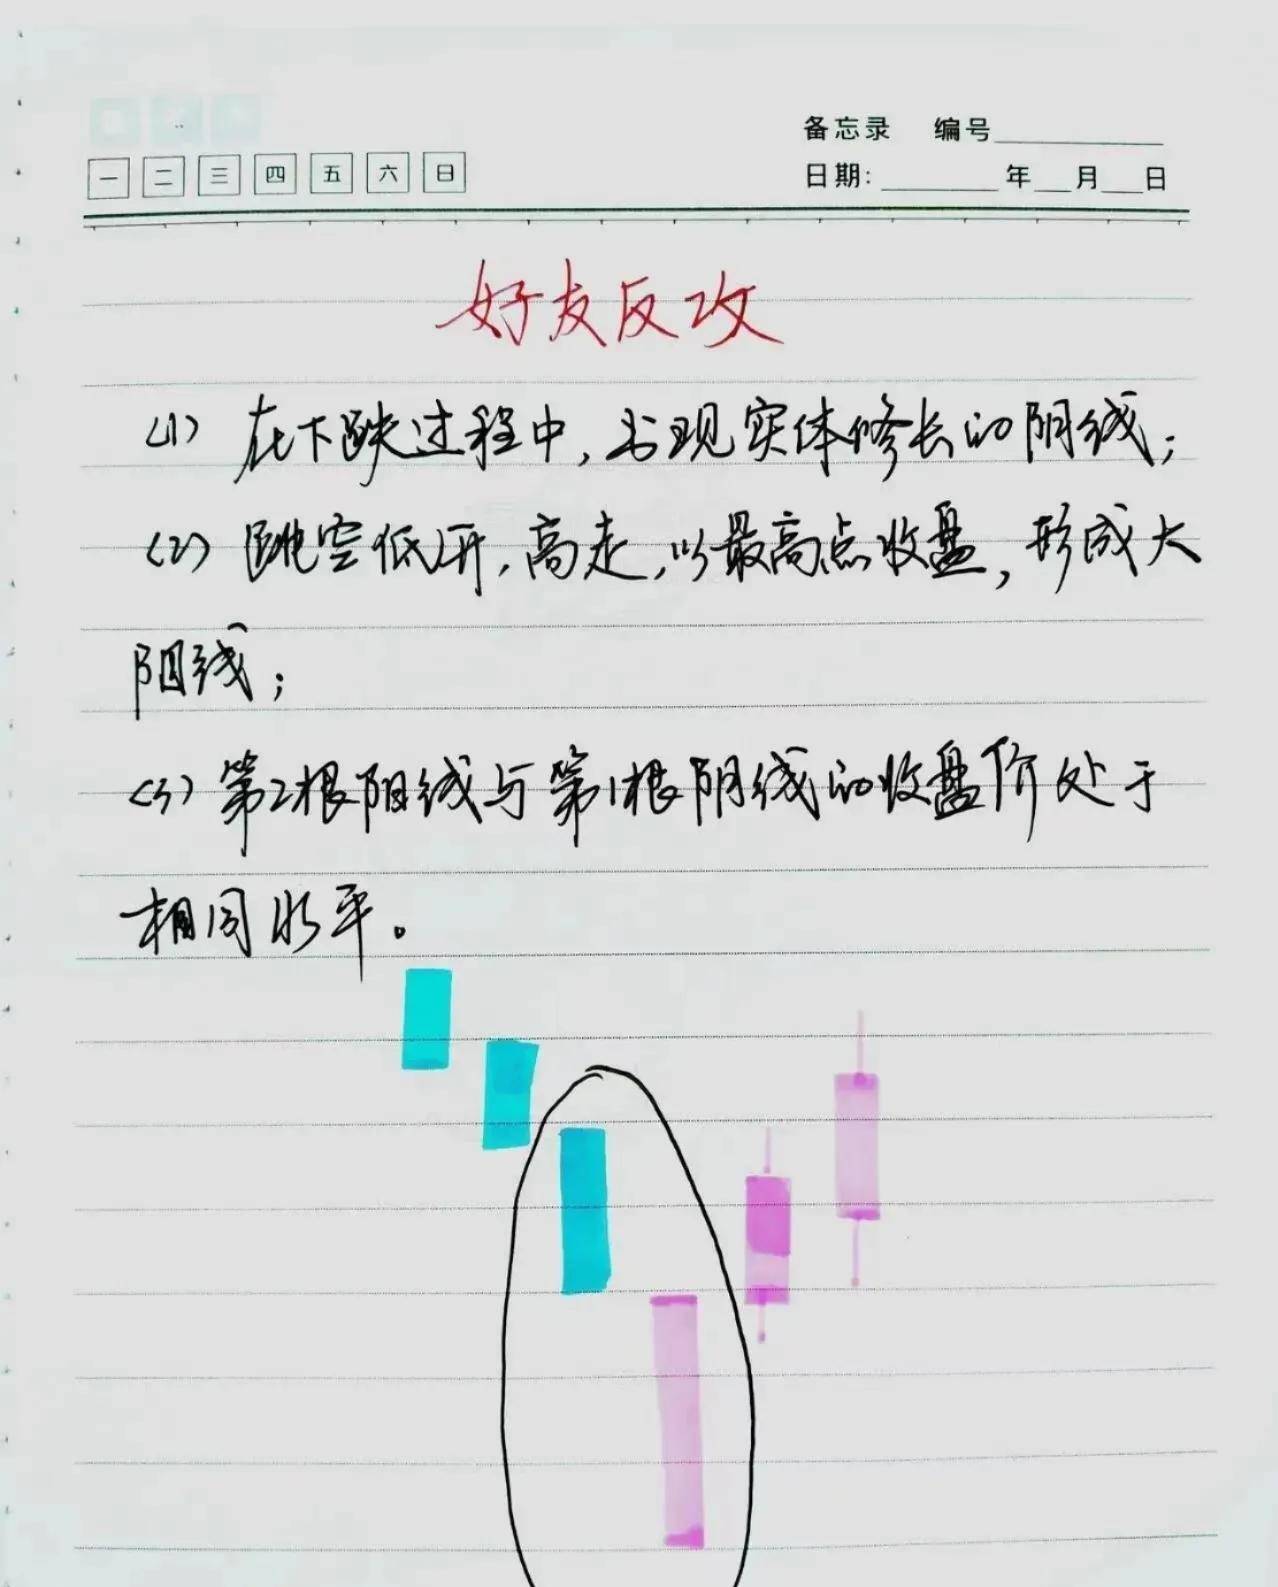 备忘录 编号
一 二 三 四 五 六 日
日期: 年 月 日
好友反攻
(1) 在下跌过程中,出现实体修长的阴线;
(2) 跳空低开,高走,以最高点收盘,形成大
阳线;
(3) 第2根阳线与第1根阴线的收盘价处于
相同水平。